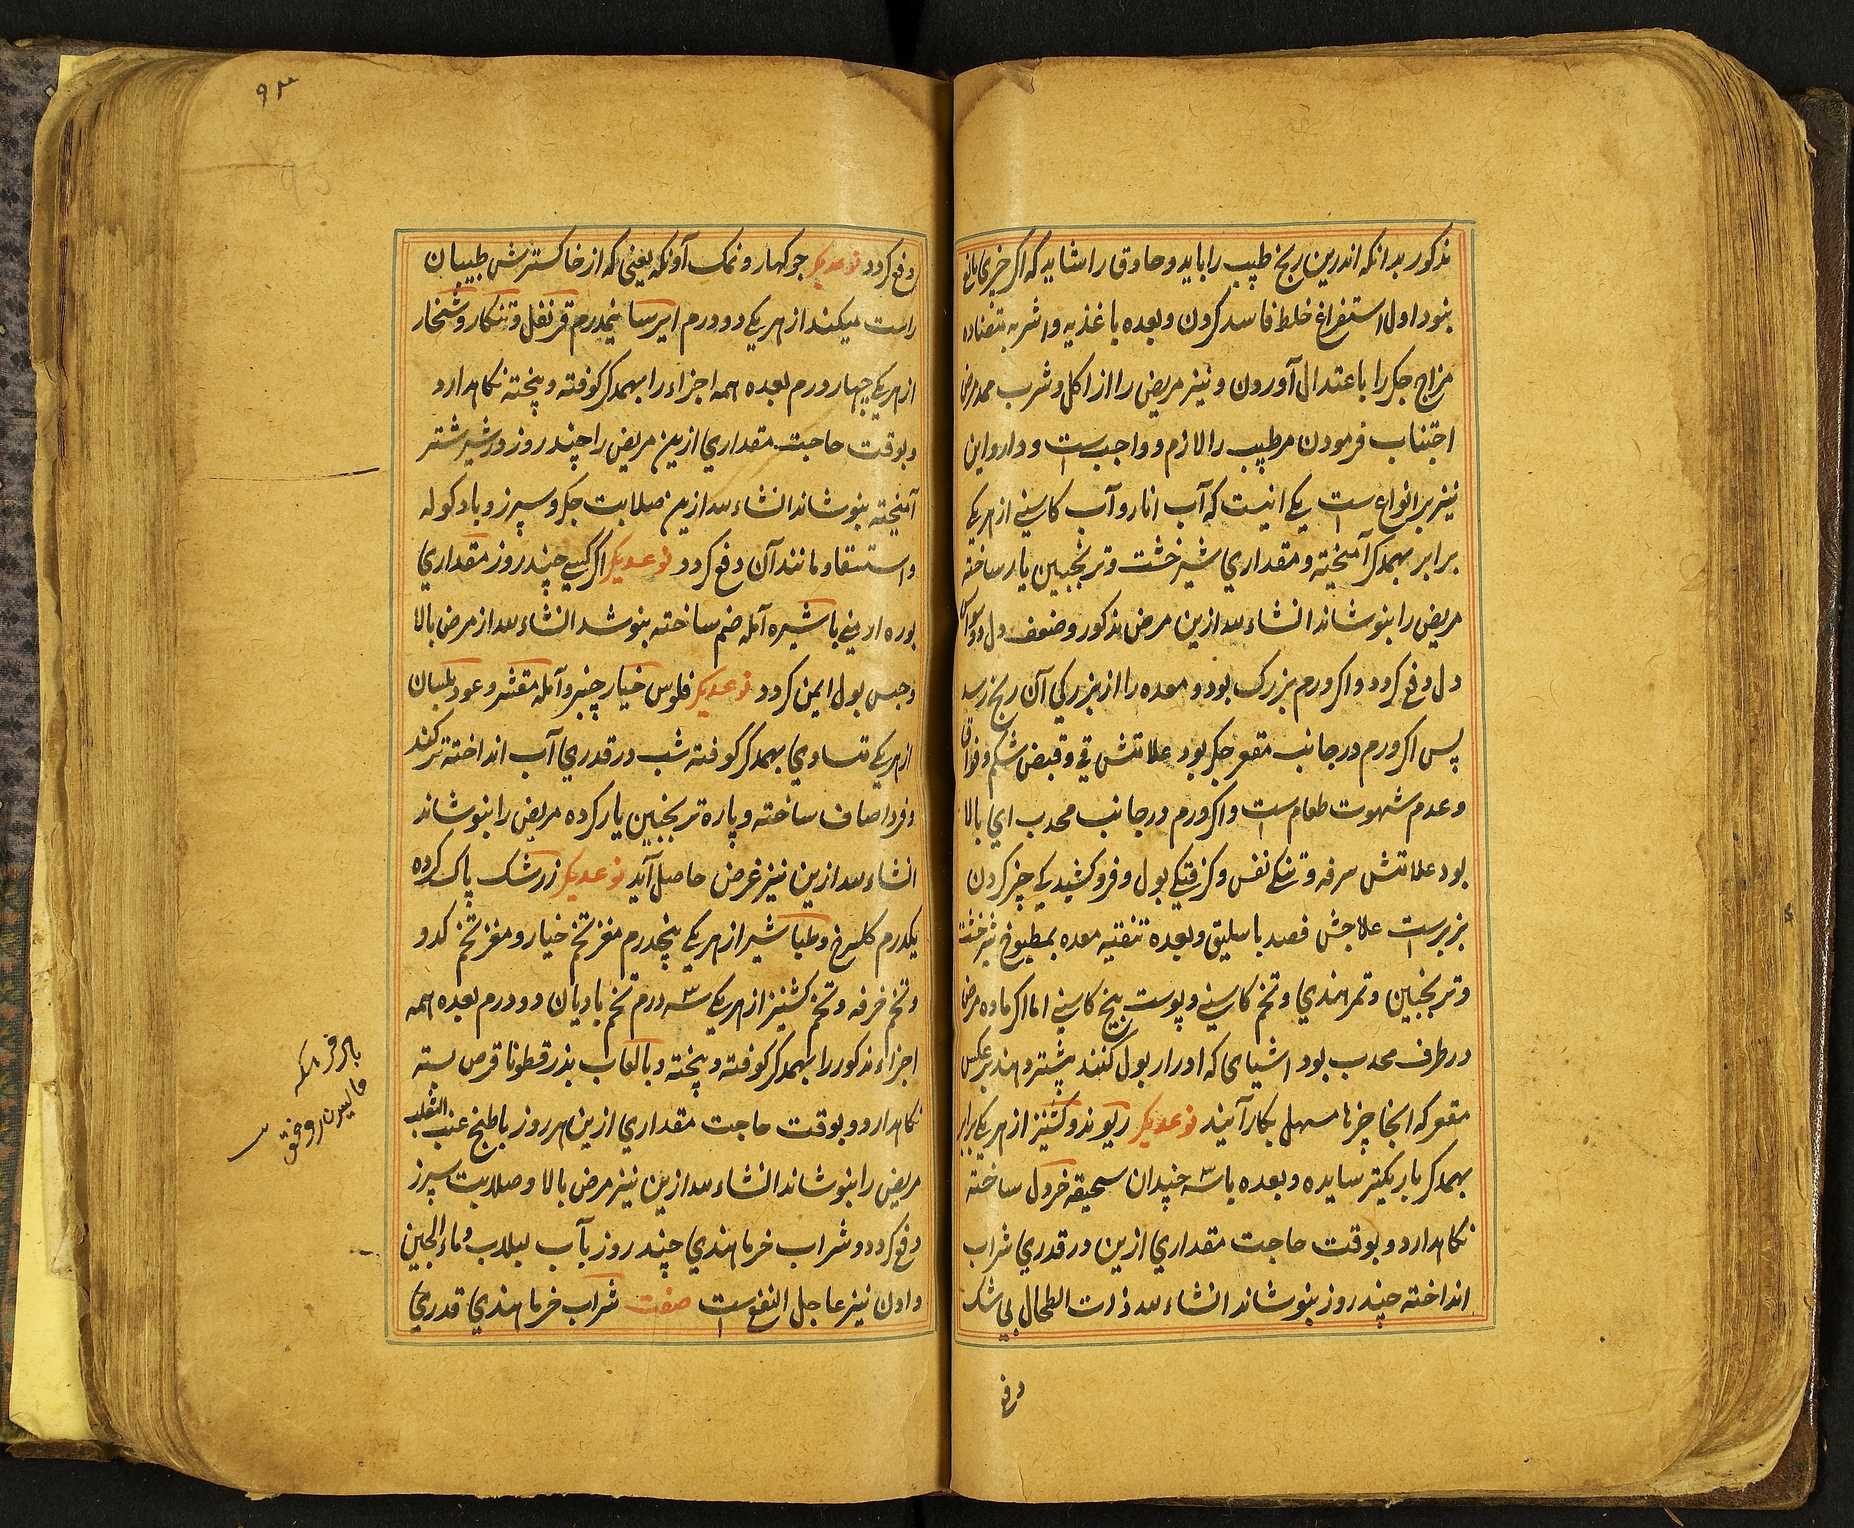 مذکور بدانکه اندرین رنج طبیب را باید و حاذق را شاید که اکر چیزی مانع
بنود اول استفراغ خلط فاسد کردن و بعده باغذیه و اشربه متضاده
مزاج جکر را باعتدال آوردن و نیز مریض را از اکل و شرب ممد مرض
اجتناب فرمودن مر طبیب را لازم و واجب است و دارو این
نیز بر انواع است یکی انیست که آب انار و آب کاسنی از هر یکی
برابر بهمدکر آمیخته و مقداری شیرخشت و ترنجبین یار ساخته
مریض را بنوشاند انشاءالله ازین مرض مذکور و ضعف دل و وسواس
دل دفع کردد و اکر ورم بزرک بود و معده را از بزرکی آن رنج رسد
پس اکر ورم در جانب مقعر جکر بود علامتش قی و قبض شکم و فواق
و عدم شهوت طعام است و اکر ورم در جانب محدب ای بالا
بود علامتش سرفه و تنکی نفس و کرفتکی بول و فرو کشیدکی چنبر کردن
بزیر است علاجش فصد باسلیق و بعده تنقیه معده بمطبوخ شیرخشت
و ترنجبین و تمر هندی و تخم کاسنی و پوست بیخ کاسنی اما اکر ماده مرض
در طرف محدب بود اشیای که ادرار بول کنند بیشتر دهند بر عکس
مقعر که انجا چیزها مسهل بکار آیند نوعدیکر ریوند و کشنیز از هر یکی برابر
بهمدکر باریکتر سایده و بعده با سه چندان سحیقه خردل ساخته
نکاهدارد و بوقت حاجت مقداری ازین در قدری شراب
انداخته چند روز بنوشاند انشاءالله ذات الطحال بی شک
دفع
۹۳
دفع کردد نوعدیکر جوکهار و نمک آونکه یعنی که از خاکسترش طبیبان
راست میکنند از هر یکی دو درم ایرسا پنجدرم قرنفل و تنکار و شخار
از هر یکی چهار درم بعده همه اجزاء را بهمدکر کوفته و پخته نکاهدارد
و بوقت حاجت مقداری ازین مریض را چند روز در شیر شتر
آمیخته بنوشاند انشاءالله ازین صلابت جکر و سپرز و باد کوله
و استسقا و مانند آن دفع کردد نوعدیکر اکر کسی چند روز مقداری
بوره ارمنی با شیره آمله ضم ساخته بنوشد انشاءالله از مرض بالا
و حبس بول ایمن کردد نوعدیکر فلوس خیار چنبر و آمله مقشر و عود بلسان
از هر یکی تساوی بهمدکر کوفته شب در قدری آب انداخته تر کند
و فردا صاف ساخته و پاره ترنجبین یار کرده مریض را بنوشاند
انشاءالله ازین نیز غرض حاصل آید نوعدیکر زرشک پاک کرده
یکدرم کلسرخ و طباشیر از هر یکی پنجدرم مغز تخم خیار و مغز تخم کدو
و تخم خرفه و تخم کشنیز از هر یکی سه درم تخم بادیان دو درم بعده همه
اجزاء مذکور را بهمدکر کوفته و پخته و بالعاب بذرقطونا قرص بسته
نکاهدارد و بوقت حاجت مقداری ازین هر روز با طبخ عنب الثعلب
مریض را بنوشاند انشاءالله ازین نیز مرض بالا و صلابت سپرز
دفع کردد و شراب خرما هندی چند روز بآب لبلاب و ماء الجبن
دادن نیز عاجل النفع است صفت شراب خرما هندی قدری